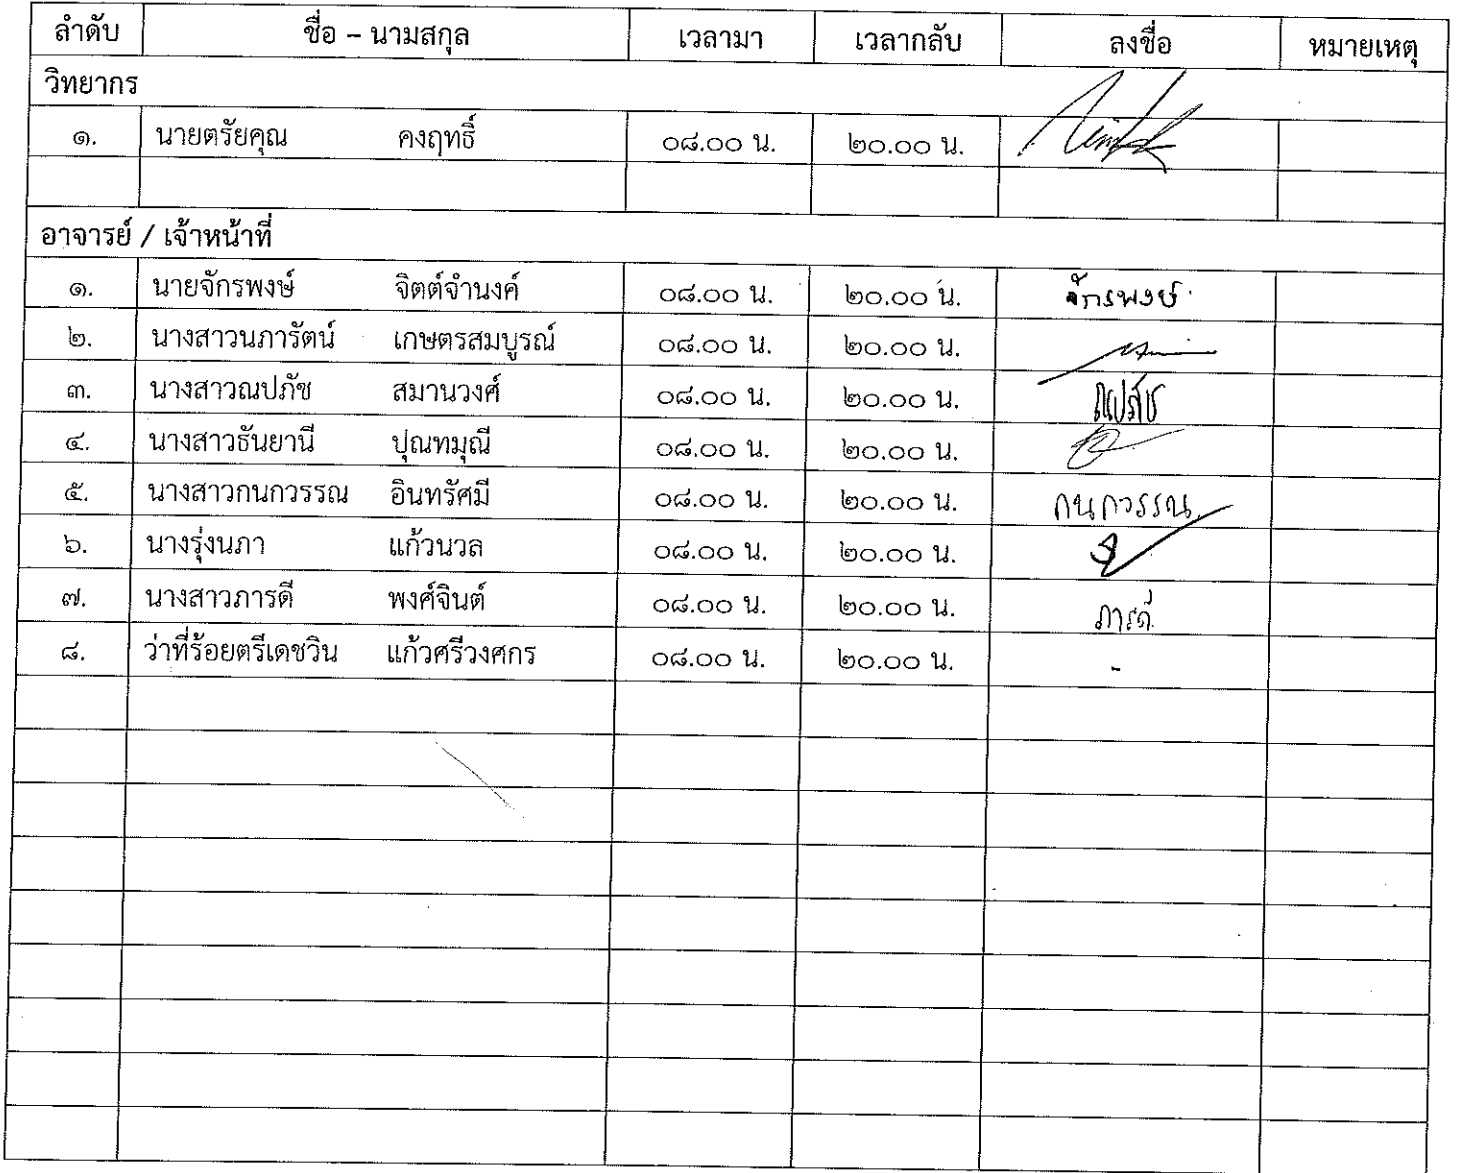 ลำดับ ชื่อ – นามสกุล เวลามา เวลากลับ ลงชื่อ หมายเหตุ
วิทยากร
๑. นายตรัยคุณ คงฤทธิ์ ๐๘.๐๐ น. ๒๐.๐๐ น.
อาจารย์ / เจ้าหน้าที่
๑. นายจักรพงษ์ จิตต์จำนงค์ ๐๘.๐๐ น. ๒๐.๐๐ น. จักรพงษ์
๒. นางสาวนภารัตน์ เกษตรสมบูรณ์ ๐๘.๐๐ น. ๒๐.๐๐ น.
๓. นางสาวณปภัช สมานวงศ์ ๐๘.๐๐ น. ๒๐.๐๐ น. ณปภัช
๔. นางสาวธันยานี ปุณทมุณี ๐๘.๐๐ น. ๒๐.๐๐ น.
๕. นางสาวกนกวรรณ อินทรัศมี ๐๘.๐๐ น. ๒๐.๐๐ น. กนกวรรณ
๖. นางรุ่งนภา แก้วนวล ๐๘.๐๐ น. ๒๐.๐๐ น.
๗. นางสาวภารดี พงศ์จินต์ ๐๘.๐๐ น. ๒๐.๐๐ น. ภารดี
๘. ว่าที่ร้อยตรีเดชวิน แก้วศรีวงศกร ๐๘.๐๐ น. ๒๐.๐๐ น. -